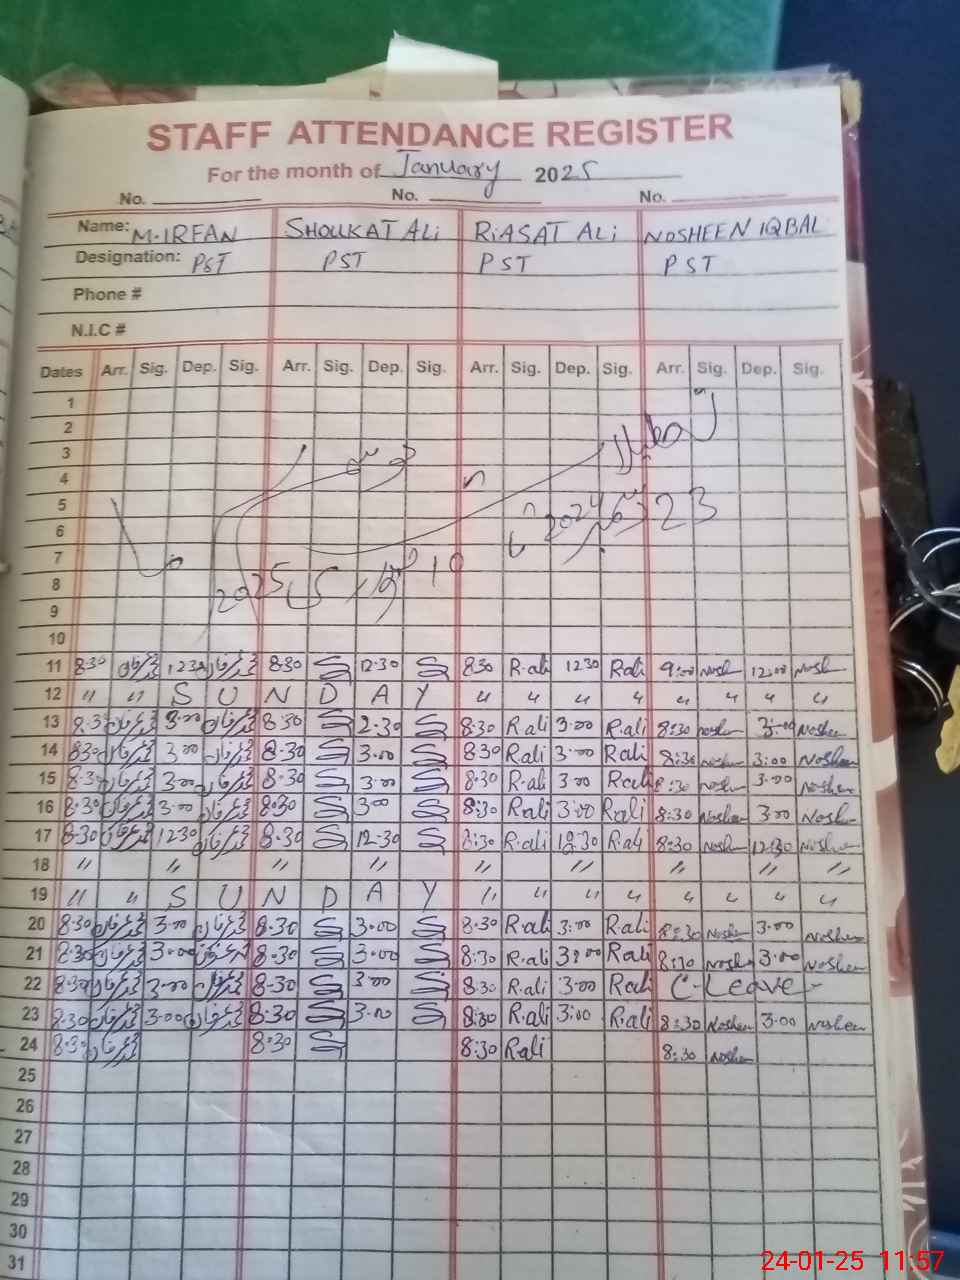 STAFF ATTENDANCE REGISTER
For the month of January 2025
No. No. No.
Name: M.IRFAN SHOUKAT ALi RiASAT ALi NOSHEEN IQBAL
Designation: PST PST PST PST
Phone #
N.I.C #
Dates Arr. Sig. Dep. Sig. Arr. Sig. Dep. Sig. Arr. Sig. Dep. Sig. Arr. Sig. Dep. Sig.
1
2
3
4
5 2024 23
6
7
8 2025 10
9
10
11 8:30 محمد عرفان 12:30 محمد عرفان 8:30 12.30 8:30 R.ali 12:30 Rali 9:00 Nosh 12:00 Nosh
12 " " S U N D A Y " " " " " " " "
13 8:30 محمد عرفان 3:00 محمد عرفان 8:30 2.30 8:30 R.ali 3:00 R.ali 8:30 noshen 3:00 Nosheen
14 8:30 محمد عرفان 3:00 محمد عرفان 8.30 3.00 8:30 Rali 3:00 Rali 8:30 noshen 3:00 Nosheen
15 8:30 محمد عرفان 3:00 محمد عرفان 8.30 3:00 8:30 R.ali 3:00 Rali 8:30 nosh 3:00 Nosheen
16 8:30 محمد عرفان 3:00 محمد عرفان 8:30 3:00 8:30 Rali 3:00 Rali 8:30 Noshen 3:00 Nosh
17 8:30 محمد عرفان 12:30 محمد عرفان 8.30 12.30 8:30 R.ali 12:30 R.ali 8:30 Noshen 12:30 Noshen
18 " " " " " " " "
19 " " S U N D A Y " " " " " " " "
20 8.30 محمد عرفان 3:00 محمد عرفان 8.30 3.00 8:30 Rali 3:00 R.ali 8:30 Noshen 3:00 Noshen
21 8:30 محمد عرفان 3:00 محمد عرفان 8.30 3.00 8:30 R.ali 3:00 Rali 8:30 Noshn 3:00 Noshen
22 8:30 محمد عرفان 3:00 محمد عرفان 8:30 3:00 8:30 R.ali 3:00 Rali C-Leave-
23 8:30 محمد عرفان 3:00 محمد عرفان 8:30 3:00 8:30 R.ali 3:00 R.ali 8:30 Noshen 3:00 noshen
24 8:30 محمد عرفان 8:30 8:30 Rali 8:30 noshen
25
26
27
28
29
30
31
24-01-25 11:57